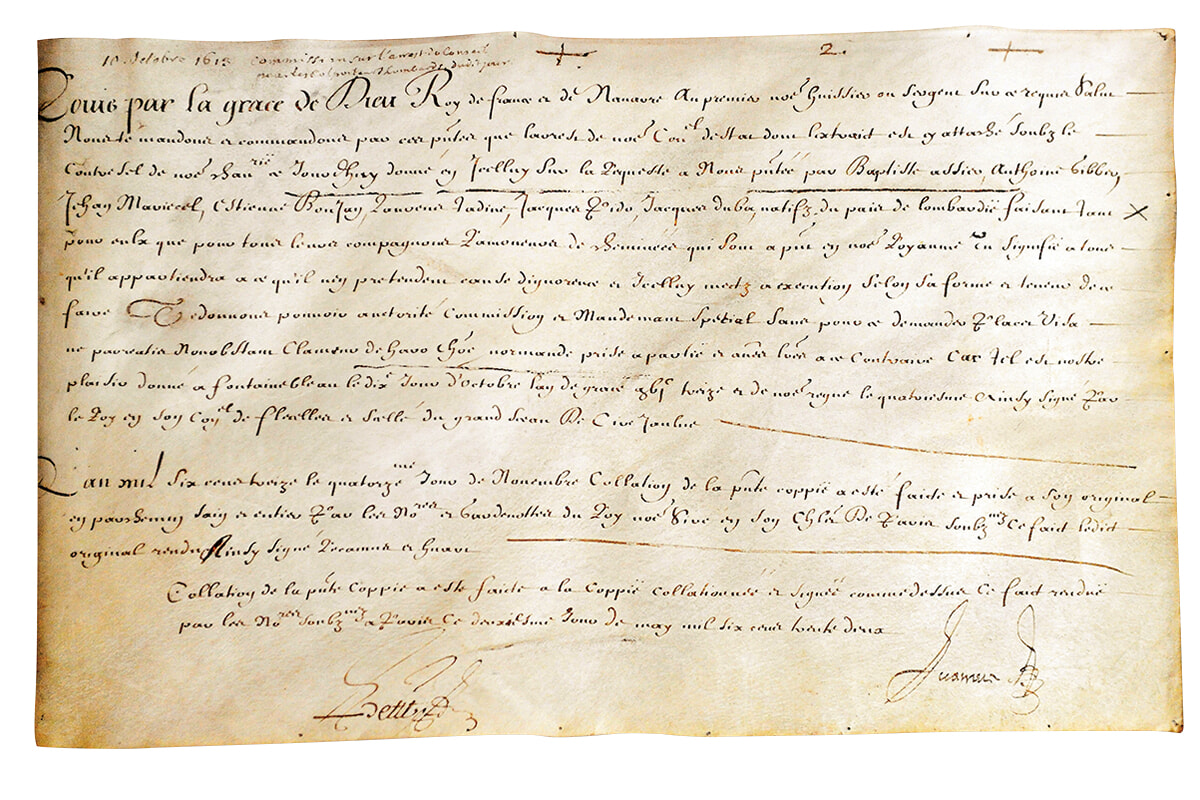 10 Octobre 1613 Commission sur l'arrest du Conseil
2
Louis par la grace de Dieu Roy de france et de Navarre Au premier noꝛe huissier ou sergent sur ce requis Salut
Nous te mandons et commandons par ces pñtes que l'arrest de noꝛe Conel destat dont lextraict est cy attaché soubz le
Contresel de noꝛe chanrie ce Jourdhuy donné en Icelluy sur la Requeste a Nous pñtée par Baptiste assico, Anthoine Gibbin,
Jehan Mariecel, Estienne Bonjan, Laurens Tadine, Jacques Pido, Jacques duba, natifz du pais de lombardië faisant tant
pour eulx que pour tous leurs compagnons Ramoneurs de cheminées qui sont a pñt en noꝛe Royaume Tu signifie a tous
qu'il appartiendra a ce qu'il n'en pretendent cause dignorence et Icelluy metz a execution selon sa forme et teneur de ce
faire Te donnons pouvoir auctorité Commission et Mandemant special sans pour ce demander Placet Visa
ne pareatis Nonobstant Clameur de haro chře normande prise a partie et aues lrēs a ce contraire Car tel est nostre
plaisir donné a fontainebleau le dixe Jour d'Octobre l'an de grace gbic treize et de noꝛe regne le quatriesme Ainsy signé Par
le Roy en son Conel de flecelles et sellé du grand sceau De Cire Jaulne
L'an mil six cens treize le quatorzeme Jour de Novembre Collation de la pñte coppië a esté faite et prise a son original
en parchemin sain et entier Par les Nores et Gardenottes du Roy noꝛe Sire en son Chlet De Paris soubznez Ce faict ledict
original rendu Ainsy signé Lecamus et huart
Collation de la pñte Coppië a este faicte a la Coppië collationnée et signée comme dessus Ce fait rendue
par les Nores soubznez a Paris Ce deuxiesme Jour de may mil six cens trente deux